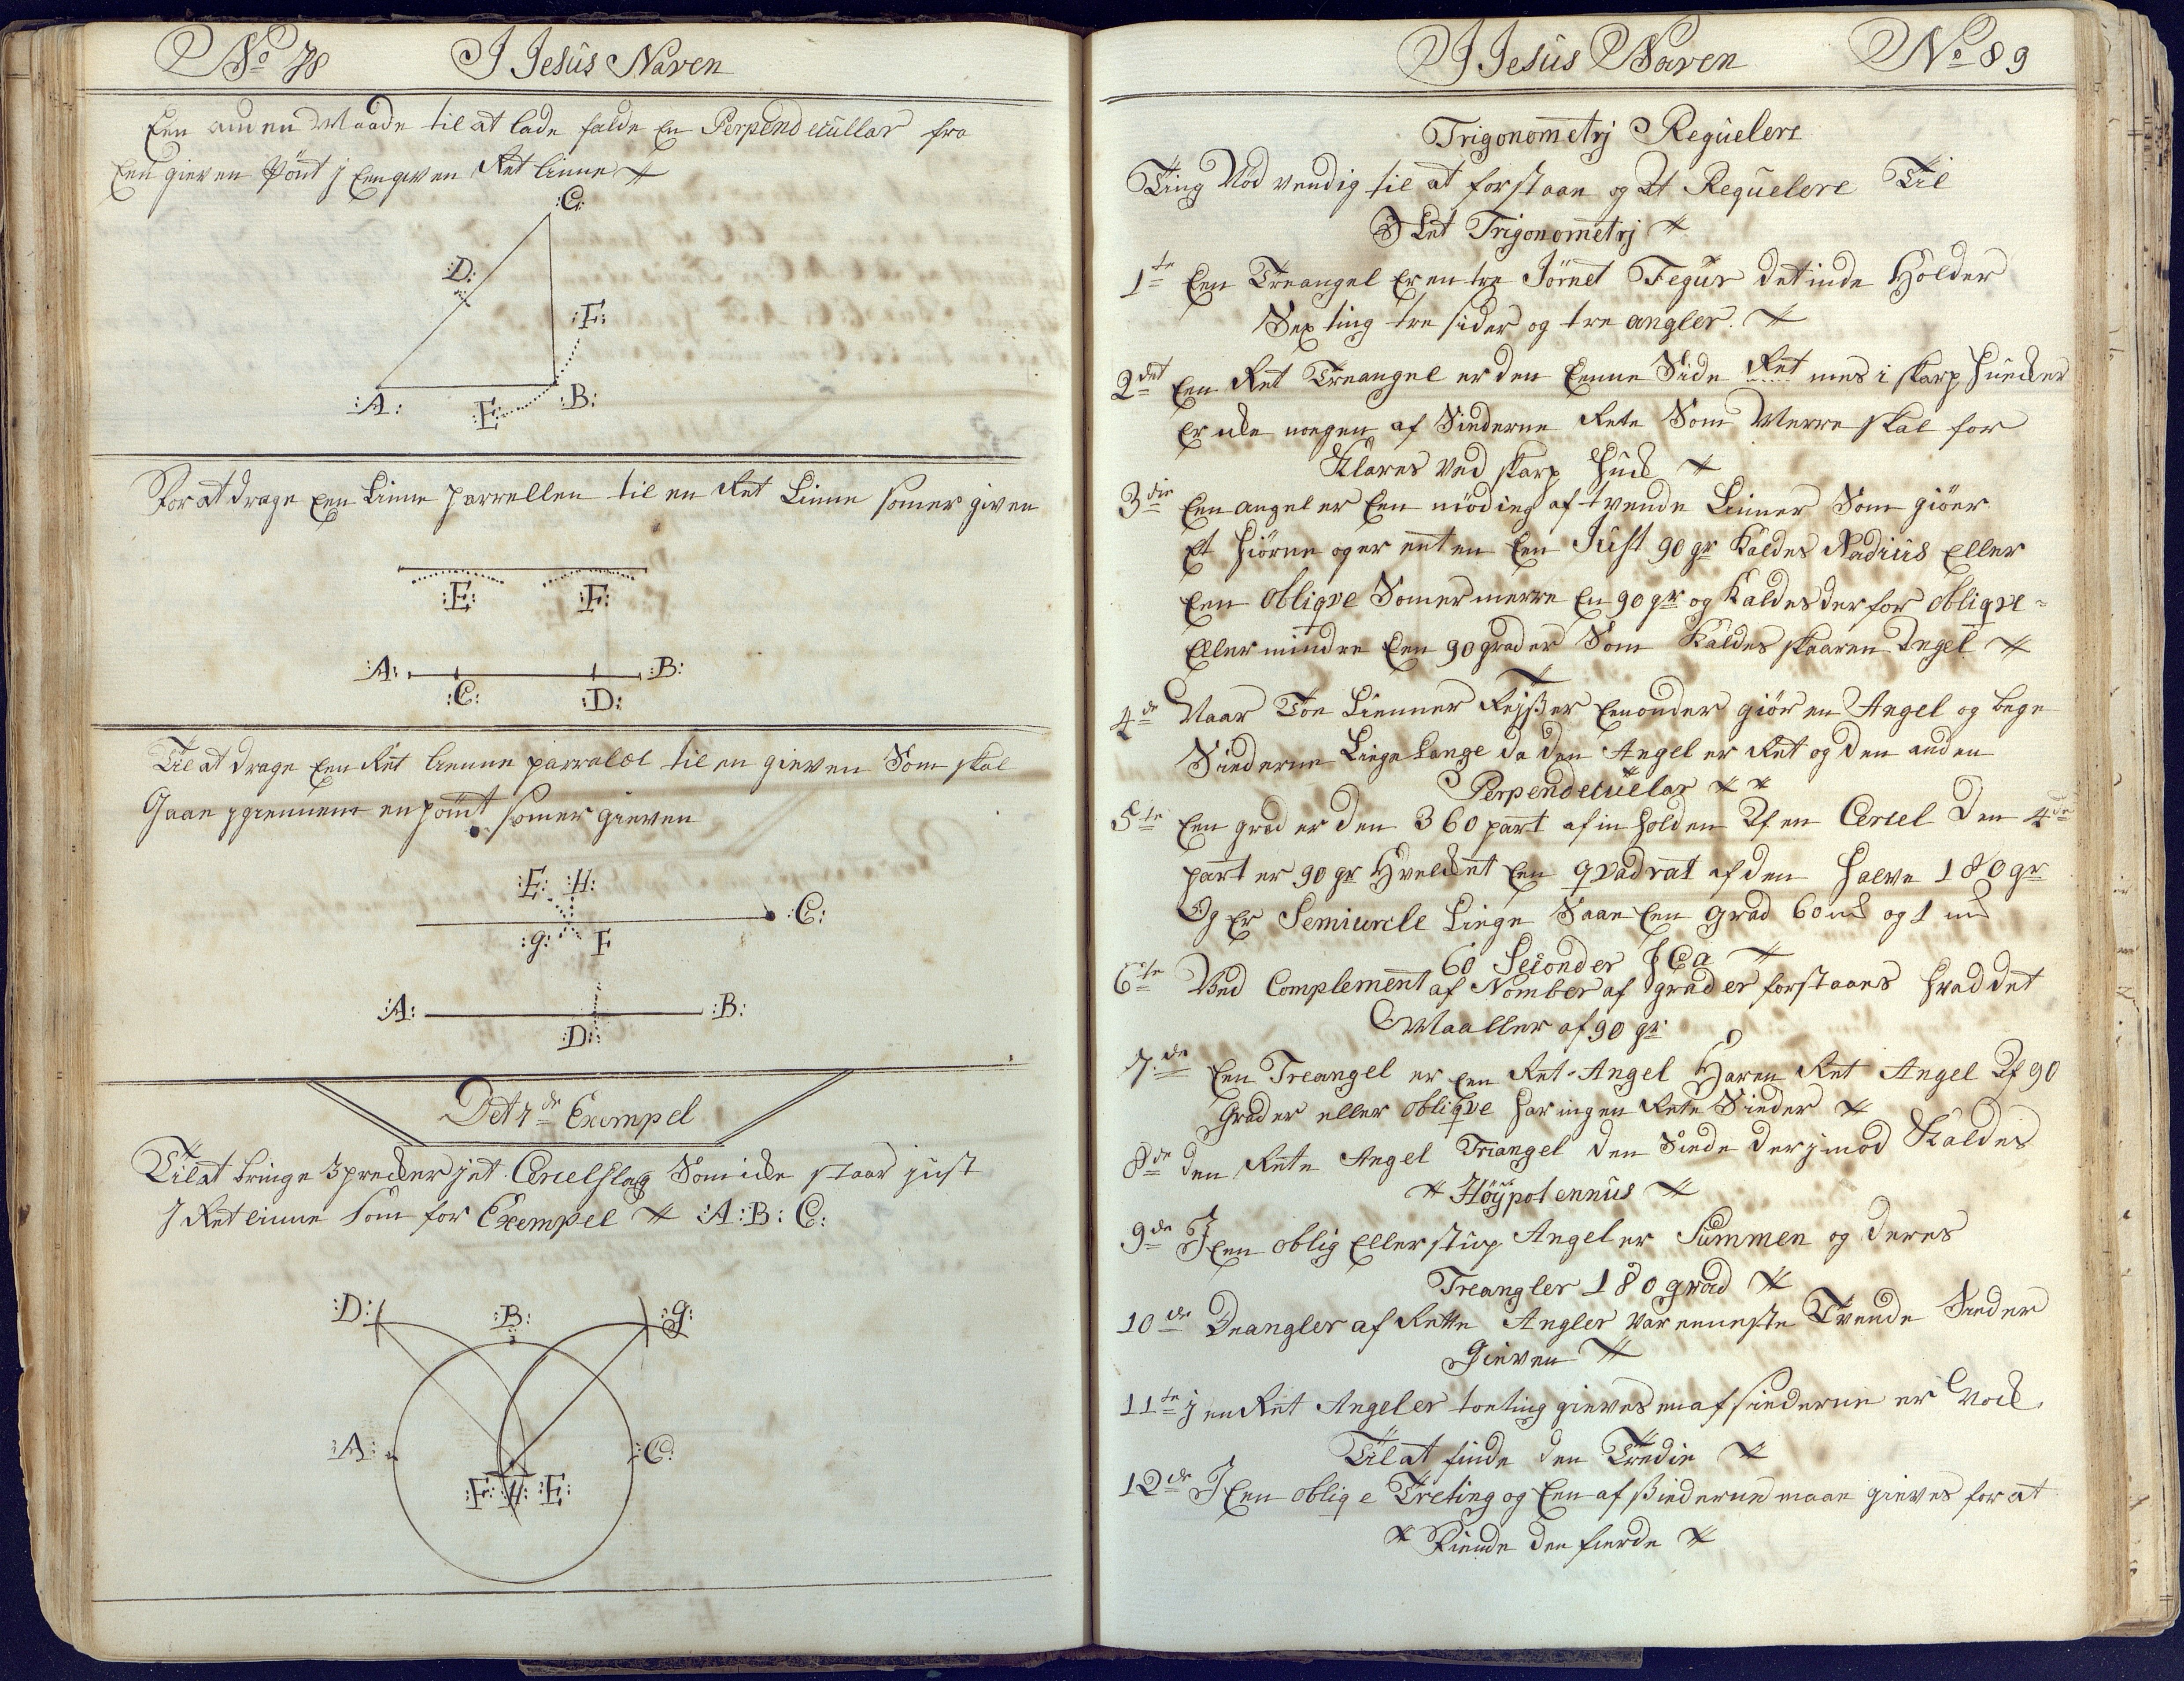 No 78 I Jesus Naven
Een anden Maade til at lade falde En Perpendecullar fra
Een gieven pönt j Een given Ret linne
:C:
:D:
:F:
:A:
:E:
:B:
For at drage Een Linne parrellen til en Ret Linne som er given
:E: :F:
:A: :B:
:C: :D:
Til at drage Een Ret lienne parralel til en gieven Som skal
Gaae igiennem en pönt som er gieven
:E: :H:
:C:
:g: F
:A: :B:
:D:
Det 7de Exempel
Til at bringe 3 precker j et Cercelslag Som icke staar just
J Ret linne Som for Exempel :A:B:C:
:D: :B: :g:
:A: :C:
:F: :H: :E:
I Jesus Naven No 89
Trigonometrj Reguelere
Ting Nödvendig til at forstaae og At Reguelere Til
Slet Trigonometrj
1te Een Treangel er en tre Jörnet Fegur det inde Holder
Sex ting tre sider og tre angler.
2det Een Ret Treangel er den Eenne Side Ret mens i skarp huecker
Er icke noegen af Siederne Rete Som Merre skal for
Klares Ved skarp huck
3die Een angel er Een möding af tvende Linner Som giör
Et hiörne og er enten Een Just 90 gr Kaldes Radius Eller
Een oblique Som er merre En 90 gr og Kaldes der for oblique
Eller mindre Een 90 grader Som Kaldes skaaren Angel
4de Naar Toe Lienner Reisser Een onder giör en Angel og bege
Siederne Liege Lange da den Angel er Ret og den anden
Perpendecuelar
5te Een grad er den 360 part af in holden Af en Cercel Den 4de
part er 90 gr Hvelcket Een qvadrat af den halve 180 gr
Og Er Semicurcle Liege Saae Een grad 60 m og 1 m
60 Seconder
6te Ved Complement af Nomber af grader forstaaes hvad det
Maaller af 90 gr
7.de Een Treangel er Een Ret-Angel Haren Ret Angel Af 90
Grader eller oblique har ingen Rete Sieder
8de den Rete Angel Triangel den Siede der jmod Kaldes
Höÿpotennus
9de J Een oblig Eller stup Angel er Summen og deres
Treangler 180 grad
10de Deangler af Rette Angler var enneste Tvende Sieder
Gieven
11te j en Ret Angel er toe ting gieves en af siederne er Nock
Til at finde den Tredie
12de J Een oblig e Tre ting og Een af Siederne maae gieves for at
Finde den fierde